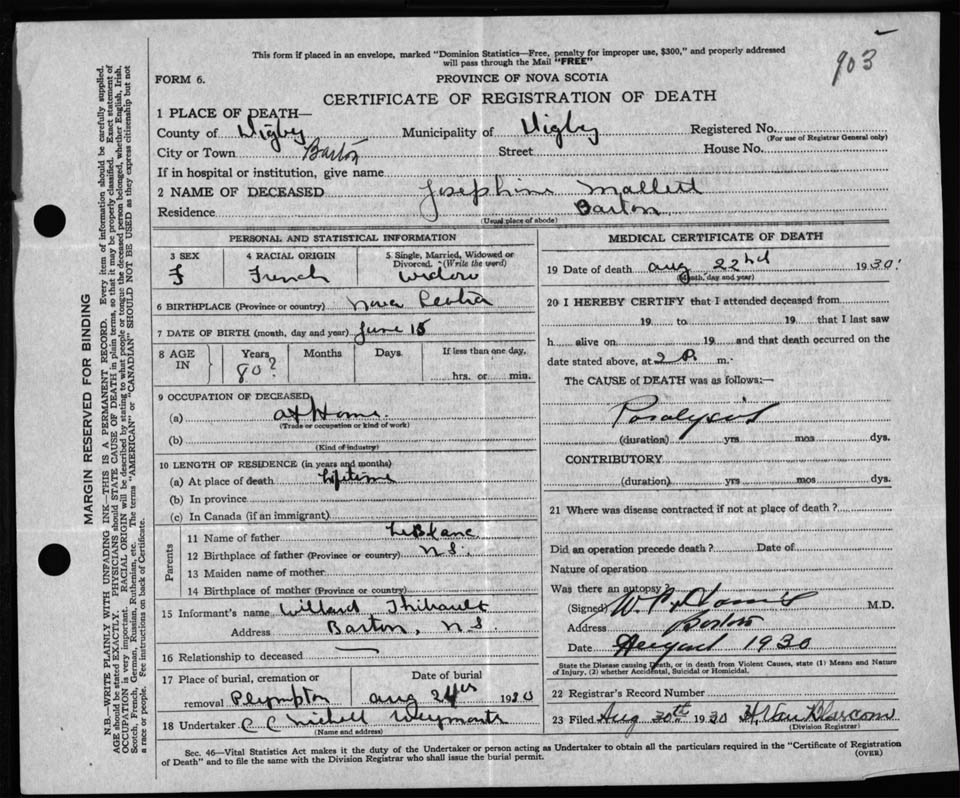 903
This form if placed in an envelope, marked "Dominion Statistics—Free, penalty for improper use, $300," and properly addressed
will pass through the Mail "FREE"
FORM 6.
PROVINCE OF NOVA SCOTIA
CERTIFICATE OF REGISTRATION OF DEATH
1 PLACE OF DEATH—
County of Digby Municipality of Digby Registered No.
(For use of Registrar General only)
City or Town Barton Street House No.
If in hospital or institution, give name
2 NAME OF DECEASED Josephine Mallett
Residence Barton
(Usual place of abode)
PERSONAL AND STATISTICAL INFORMATION
3 SEX 4 RACIAL ORIGIN 5 Single, Married, Widowed or
Divorced. (Write the word)
f French widow
6 BIRTHPLACE (Province or country) Nova Scotia
7 DATE OF BIRTH (month, day and year) June 15
8 AGE IN Years Months Days. If less than one day,
80? hrs. or min.
9 OCCUPATION OF DECEASED
(a) at Home.
(Trade or occupation or kind of work)
(b)
(Kind of industry)
10 LENGTH OF RESIDENCE (in years and months)
(a) At place of death lifetime
(b) In province
(c) In Canada (if an immigrant)
Parents
11 Name of father LeBlanc
12 Birthplace of father (Province or country) N.S.
13 Maiden name of mother
14 Birthplace of mother (Province or country)
15 Informant's name Willard Thibault
Address Barton, N.S.
16 Relationship to deceased —
17 Place of burial, cremation or Date of burial
removal Plympton Aug 24 1930
18 Undertaker C C Weymouth
(Name and address)
MEDICAL CERTIFICATE OF DEATH
19 Date of death Aug 22nd 1930
(Month, day and year)
20 I HEREBY CERTIFY that I attended deceased from
19 to 19 that I last saw
h alive on 19 and that death occurred on the
date stated above, at 2 P. m.
The CAUSE of DEATH was as follows:—
Paralysis
(duration) yrs mos dys.
CONTRIBUTORY
(duration) yrs mos dys.
21 Where was disease contracted if not at place of death?
Did an operation precede death? Date of
Nature of operation
Was there an autopsy?
(Signed) W. M.D.
Address Barton
Date August 1930
State the Disease causing Death, or in death from Violent Causes, state (1) Means and Nature
of Injury, (2) whether Accidental, Suicidal or Homicidal.
22 Registrar's Record Number
23 Filed Aug 30th 1930 H Van Blarcom
(Division Registrar)
Sec. 46—Vital Statistics Act makes it the duty of the Undertaker or person acting as Undertaker to obtain all the particulars required in the "Certificate of Registration
of Death" and to file the same with the Division Registrar who shall issue the burial permit.
(OVER)
MARGIN RESERVED FOR BINDING
N.B.—WRITE PLAINLY WITH UNFADING INK—THIS IS A PERMANENT RECORD. Every item of information should be carefully supplied.
AGE should be stated EXACTLY. PHYSICIANS should STATE CAUSE OF DEATH in plain terms, so that it may be properly classified. Exact statement of
OCCUPATION is very important. RACIAL ORIGIN will be described by stating to what people or tongue the deceased person belonged, whether English, Irish,
Scotch, French, German, Russian, Ruthenian, etc. The terms "AMERICAN" or "CANADIAN" SHOULD NOT BE USED as they express citizenship but not
a race or people. See instructions on back of Certificate.